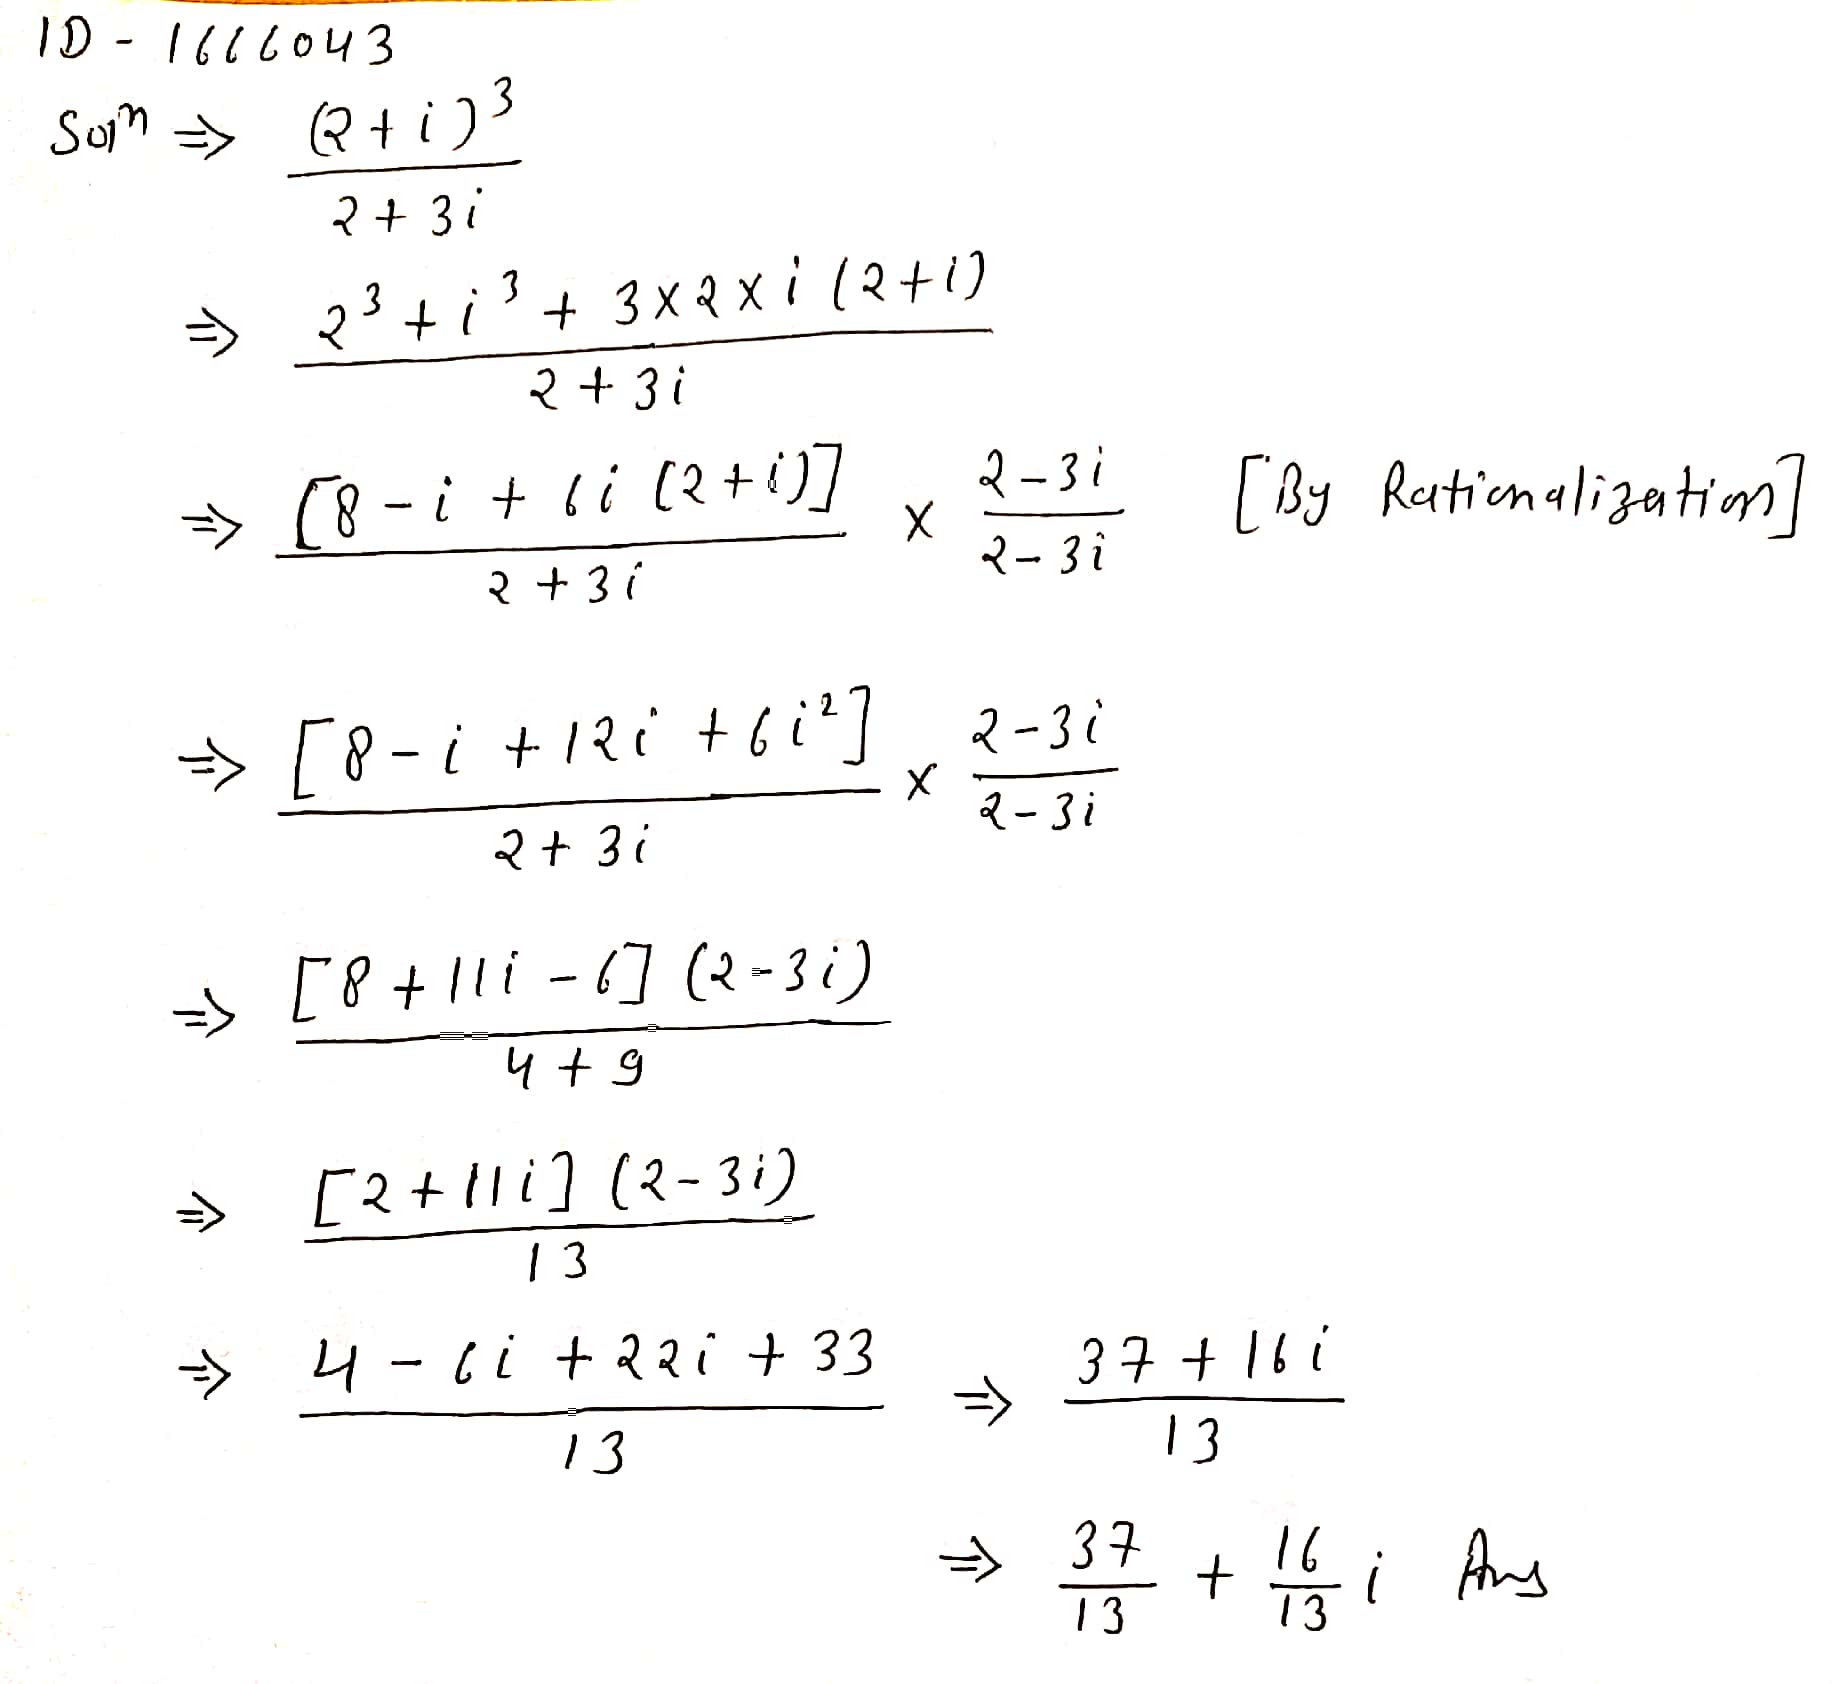 ID - 1666043
Soln ⇒ (2+i)³ / 2+3i
⇒ 2³ + i³ + 3×2×i (2+i) / 2+3i
⇒ [8 - i + 6i (2+i)] / 2+3i × 2-3i / 2-3i [By Rationalization]
⇒ [8 - i + 12i + 6i²] / 2+3i × 2-3i / 2-3i
⇒ [8 + 11i - 6] (2-3i) / 4+9
⇒ [2+11i] (2-3i) / 13
⇒ 4 - 6i + 22i + 33 / 13 ⇒ 37 + 16i / 13
⇒ 37/13 + 16/13 i Ans